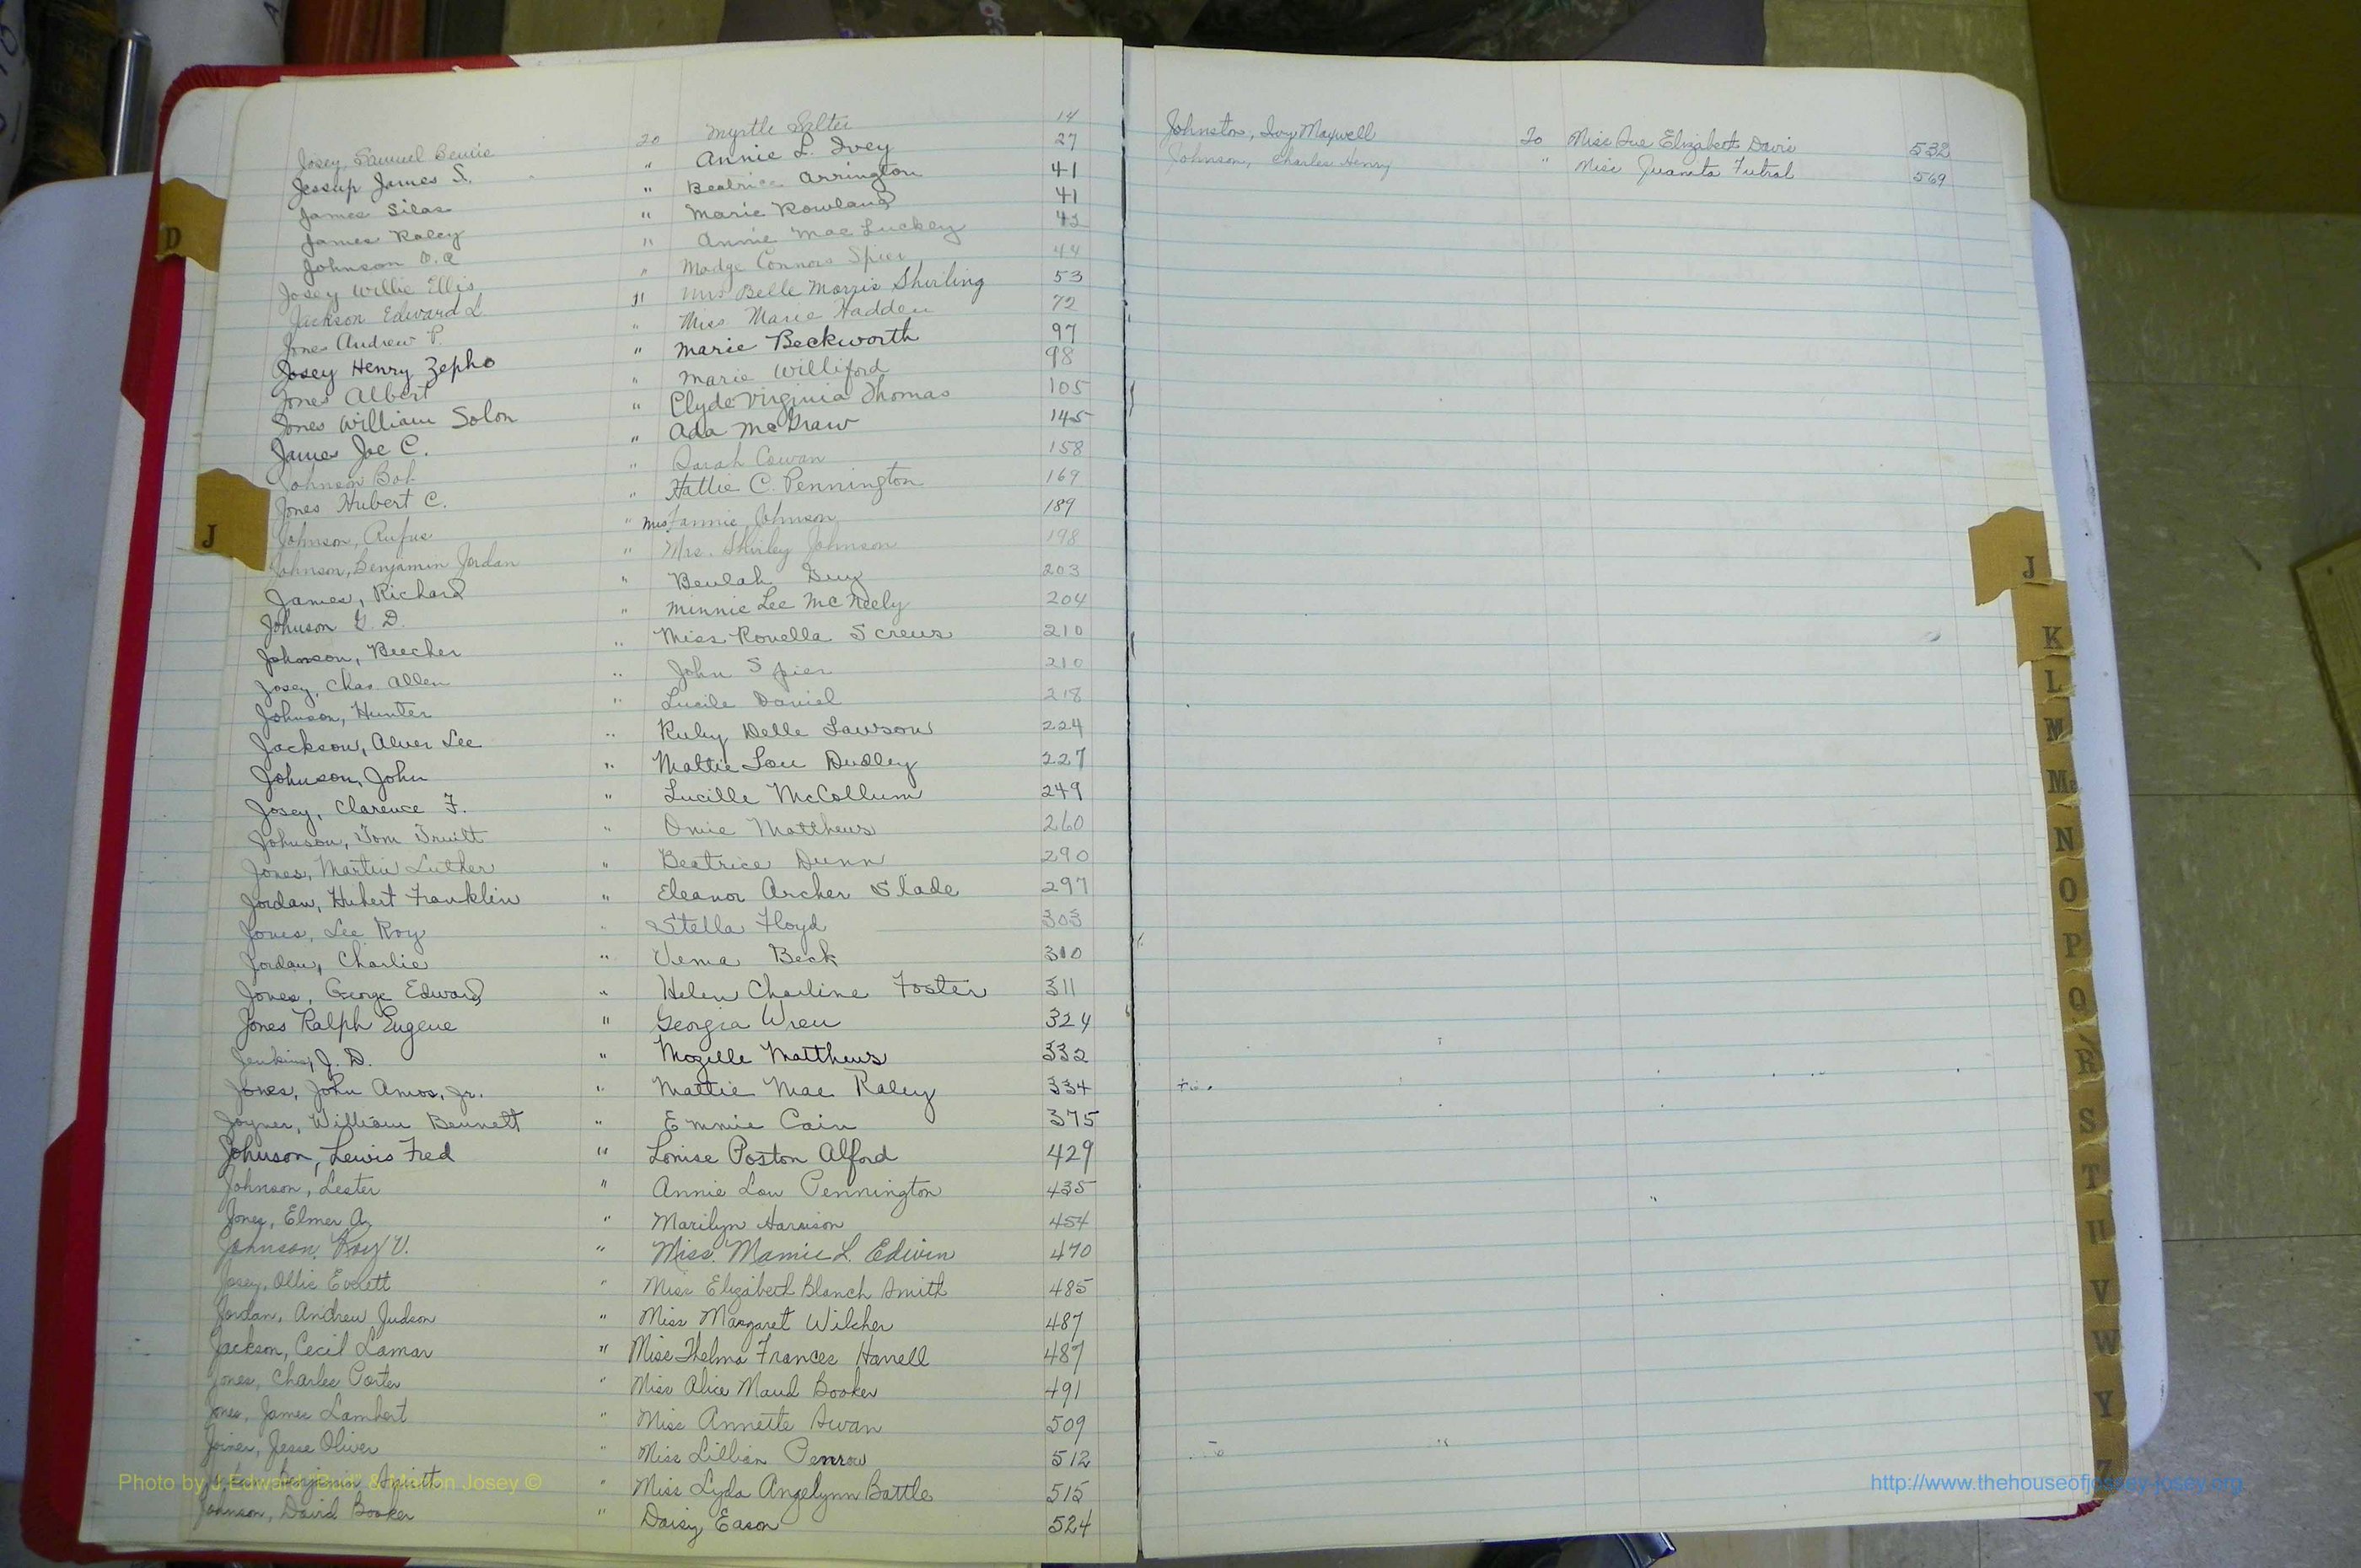 Josey, Samuel to Myrtle Salter 14
Jessup James S. " Annie L. Ivey 27
James Silas " Beatrice Arrington 41
James Raley " Marie Rowland 41
Johnson " Annie Mae Luckey 42
Josey Willie Ellis " Madge Connors Spier 44
Jackson Edward L " Mrs Belle Morris Shurling 53
Jones Andrew P. " Miss Marie Hadden 72
Josey Henry Zepho " Marie Beckworth 97
Jones Albert " Marie Williford 98
Jones William Solon " Clyde Virginia Thomas 105
James Joe C. " Ada McGraw 145
Johnson Bob " Sarah Cowan 158
Jones Hubert C. " Hattie C. Pennington 169
Johnson, Rufus " Mrs. Fannie Johnson 189
Johnson, Benjamin Jordan " Mrs. Shirley Johnson 198
James, Richard " Beulah Guy 203
Johnson G. D. " Minnie Lee McNeely 204
Johnson, Beecher " Miss Rouella Screws 210
Josey, Chas. Allen " John Spier 210
Johnson, Hunter " Lucile Daniel 218
Jackson, Alver Lee " Ruby Delle Lawson 224
Johnson, John " Mattie Lou Dudley 227
Josey, Clarence F. " Lucille McCollum 249
Johnson, Tom Truitt " Omie Matthews 260
Jones, Martin Luther " Beatrice Dunn 290
Jordan, Hubert Franklin " Eleanor Archer Slade 297
Jones, Lee Roy " Stella Floyd 303
Jordan, Charlie " Verna Beck 310
Jones, George Edward " Helen Charline Foster 311
Jones Ralph Eugene " Georgia Wren 324
Jenkins, J. D. " Mozelle Matthews 332
Jones, John Amos, Jr. " Mattie Mae Raley 334
Joyner, William Bennett " Emmie Cain 375
Johnson, Lewis Fred " Louise Poston Alford 429
Johnson, Lester " Annie Lou Pennington 435
Jones, Elmer A. " Marilyn Harrison 454
Johnson, Roy V. " Miss. Mamie L. Edwin 470
Josey, Ollie Everett " Miss Elizabeth Blanch Smith 485
Jordan, Andrew Judson " Miss Margaret Wilcher 487
Jackson, Cecil Lamar " Miss Thelma Frances Harrell 487
Jones, Charles Porter " Miss Alice Maud Booker 491
Jones, James Lambert " Miss Annette Swan 509
Joiner, Jesse Oliver " Miss Lillian Penrow 512
Benjamin " Miss Lyda Angelynn Battle 515
Johnson, David Booker " Daisy Eason 524
Johnston, Ivy Maxwell to Miss Sue Elizabeth Davis 532
Johnson, Charles Henry " Miss Juanita Futral 569
D
J
J
K
L
M
Mc
N
O
P
Q
R
S
T
U
V
W
Y
Z
Photo by J Edward "Bud" & Marion Josey ©
http://www.thehouseofjossey-josey.org